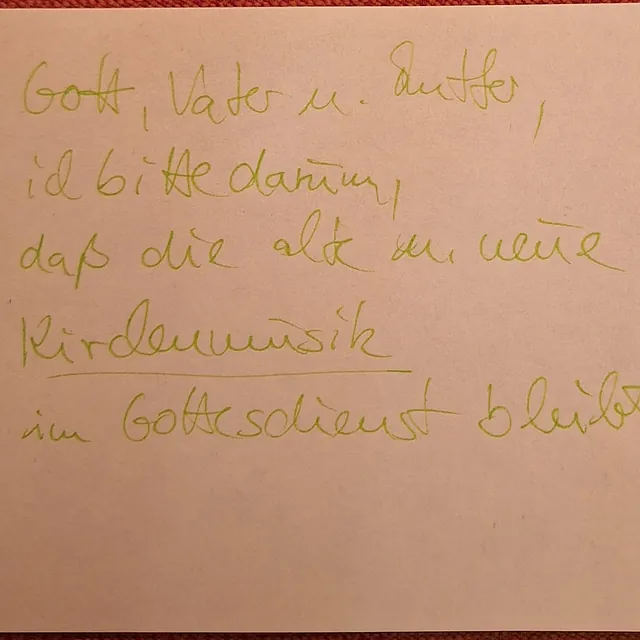 Gott, Vater u. Mutter,
ich bitte darum,
daß die alte u. neue
Kirchenmusik
im Gottesdienst bleibt